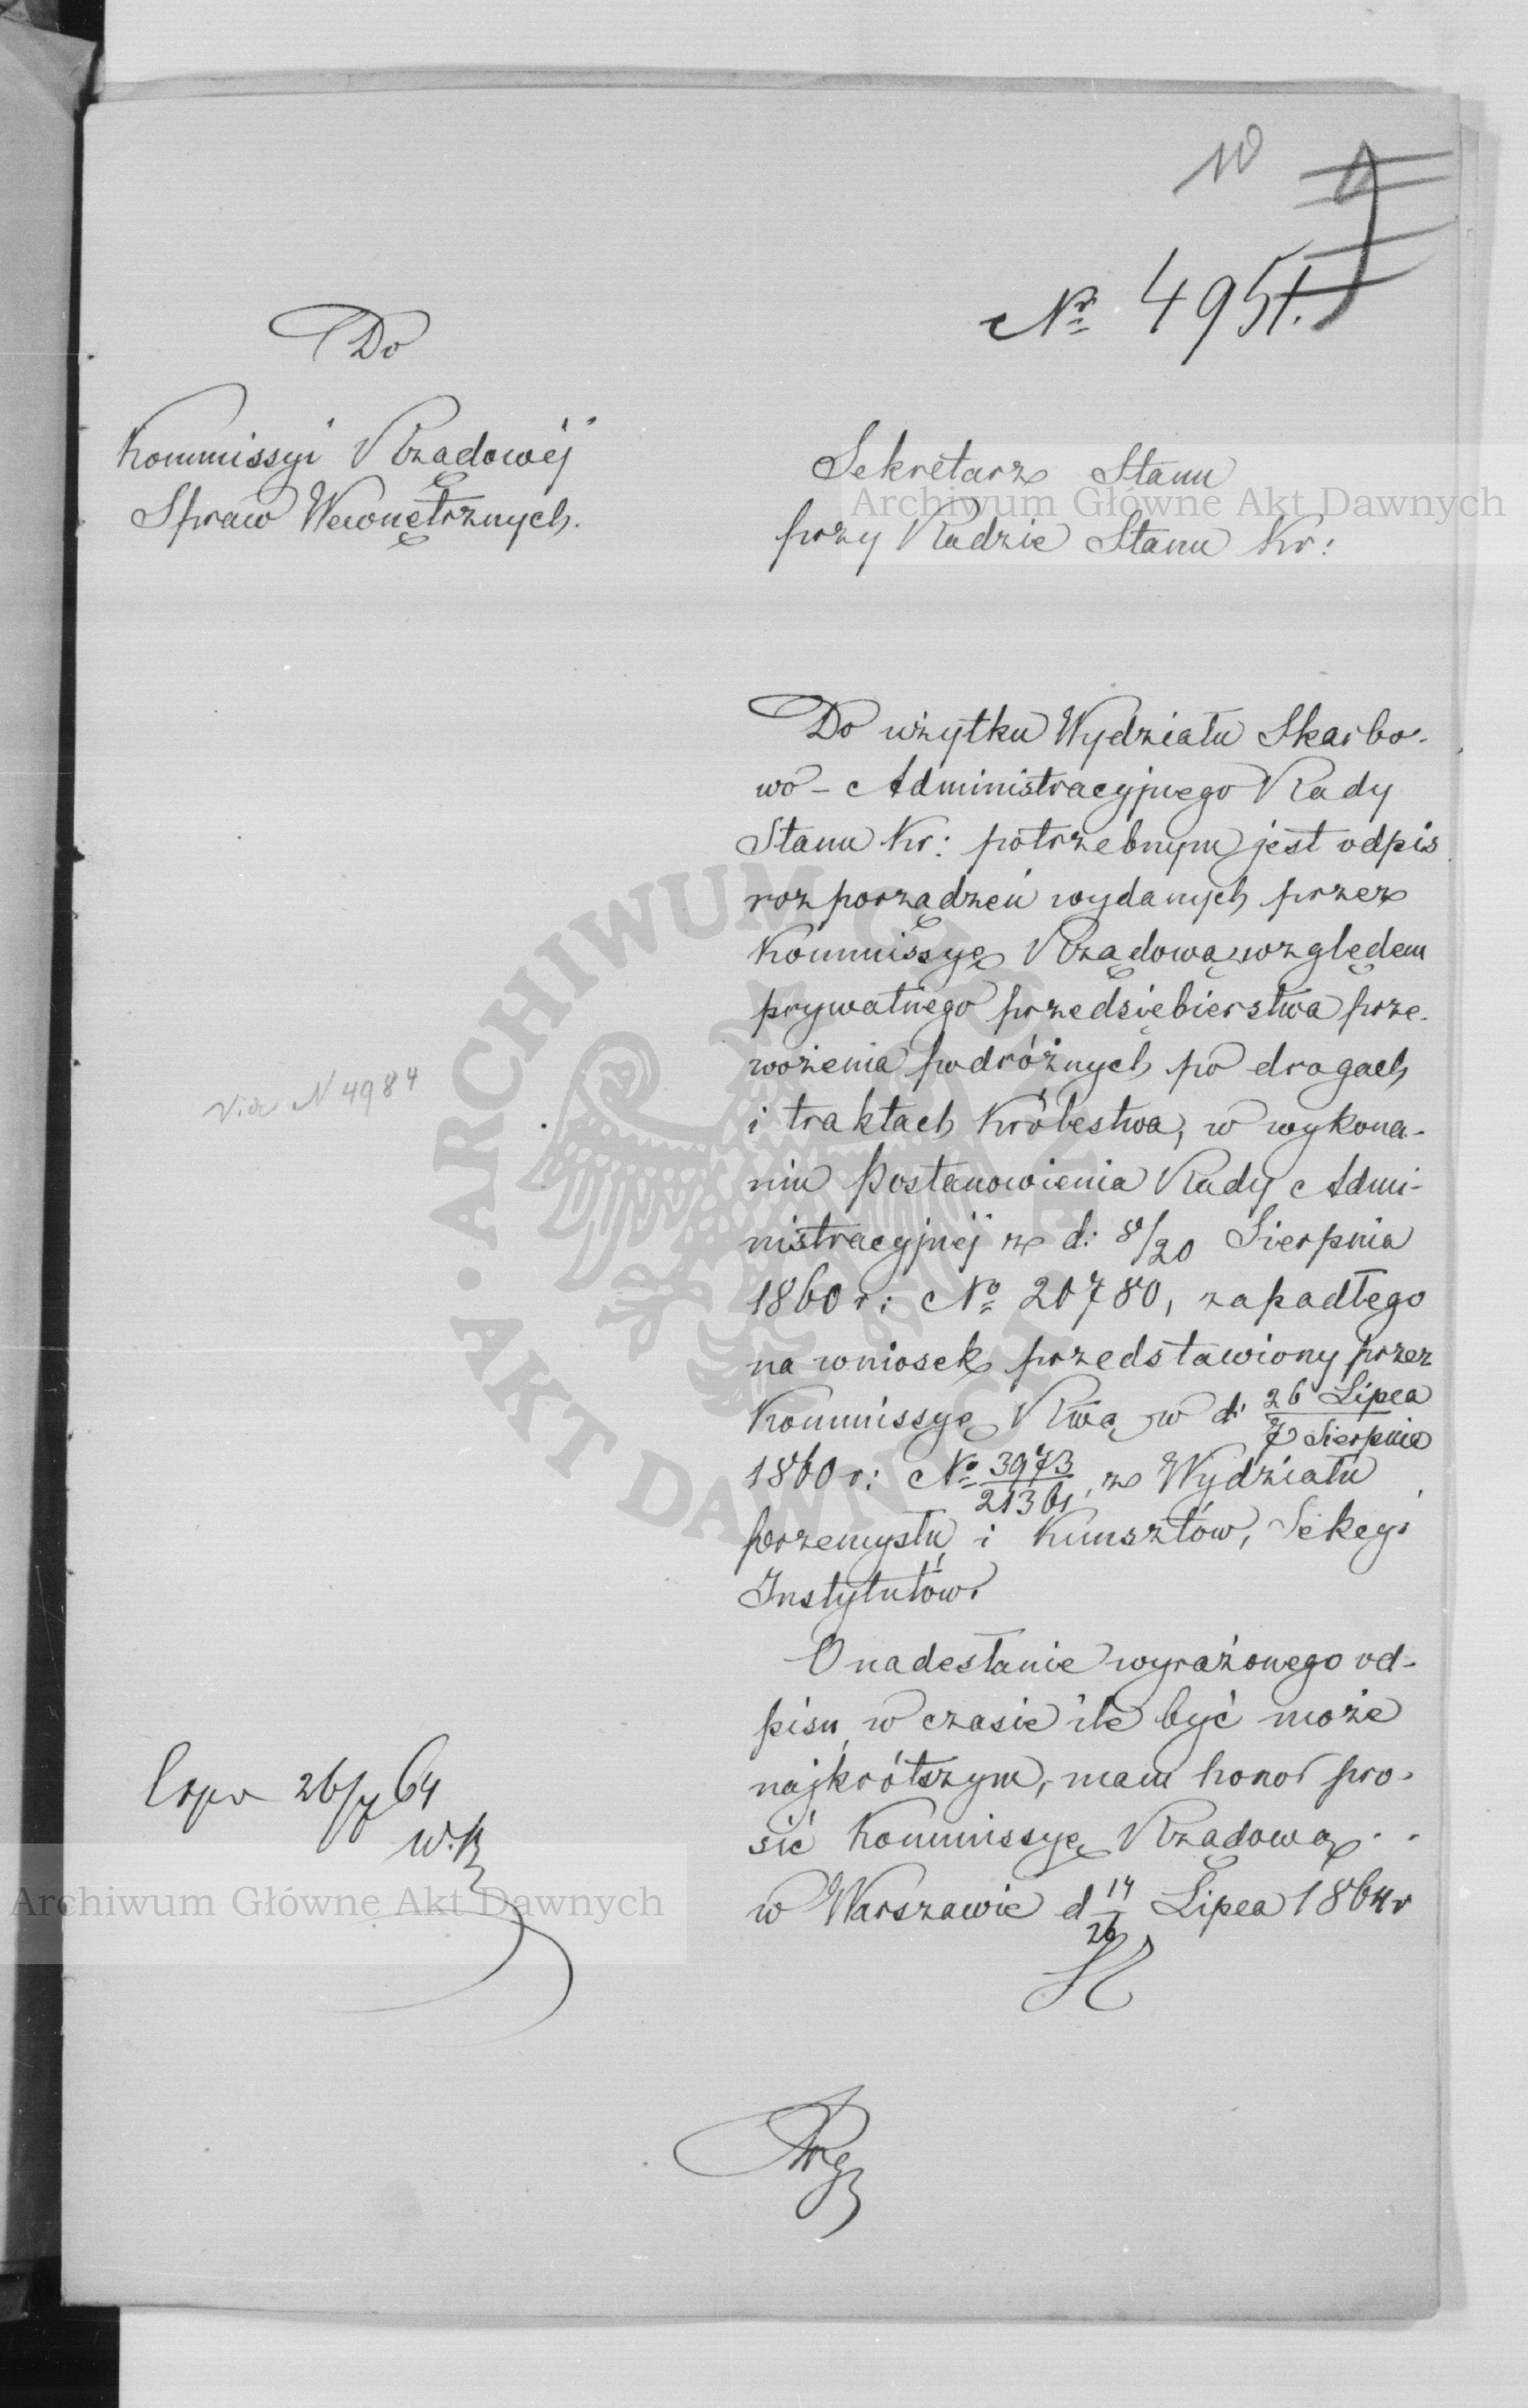 10
Nr 4951.
Do
Kommissyi Rządowéj
Spraw Wewnętrznych.
Sekretarz Stanu
przy Radzie Stanu Kr:
Do użytku Wydziału Skarbo-
wo-Administracyjnego Rady
Stanu Kr: potrzebnym jest odpis
rozporządzeń wydanych przez
Kommissyę Rządową względem
prywatnego przedsiębierstwa prze-
wożenia podróżnych po drogach
i traktach Królestwa, w wykona-
niu Postanowienia Rady Admi-
nistracyjnéj z d: 8/20 Sierpnia
1860 r: No 20780, zapadłego
na wniosek przedstawiony przez
Kommissyę Rwą w d. 26 Lipca/7 Sierpnia
1860 r: No 3973/21361, z Wydziału
przemysłu i Kunsztów, Sekcyi
Instytutów.
O nadesłanie wyrażonego od-
pisu w czasie ile być może
najkrótszym, mam honor pro-
sić Kommissyę Rządową.
w Warszawie d 14/26 Lipca 1864 r
N 4984
26/7 64
Archiwum Główne Akt Dawnych
Archiwum Główne Akt Dawnych
ARCHIWUM GŁÓWNE · AKT DAWNYCH ·